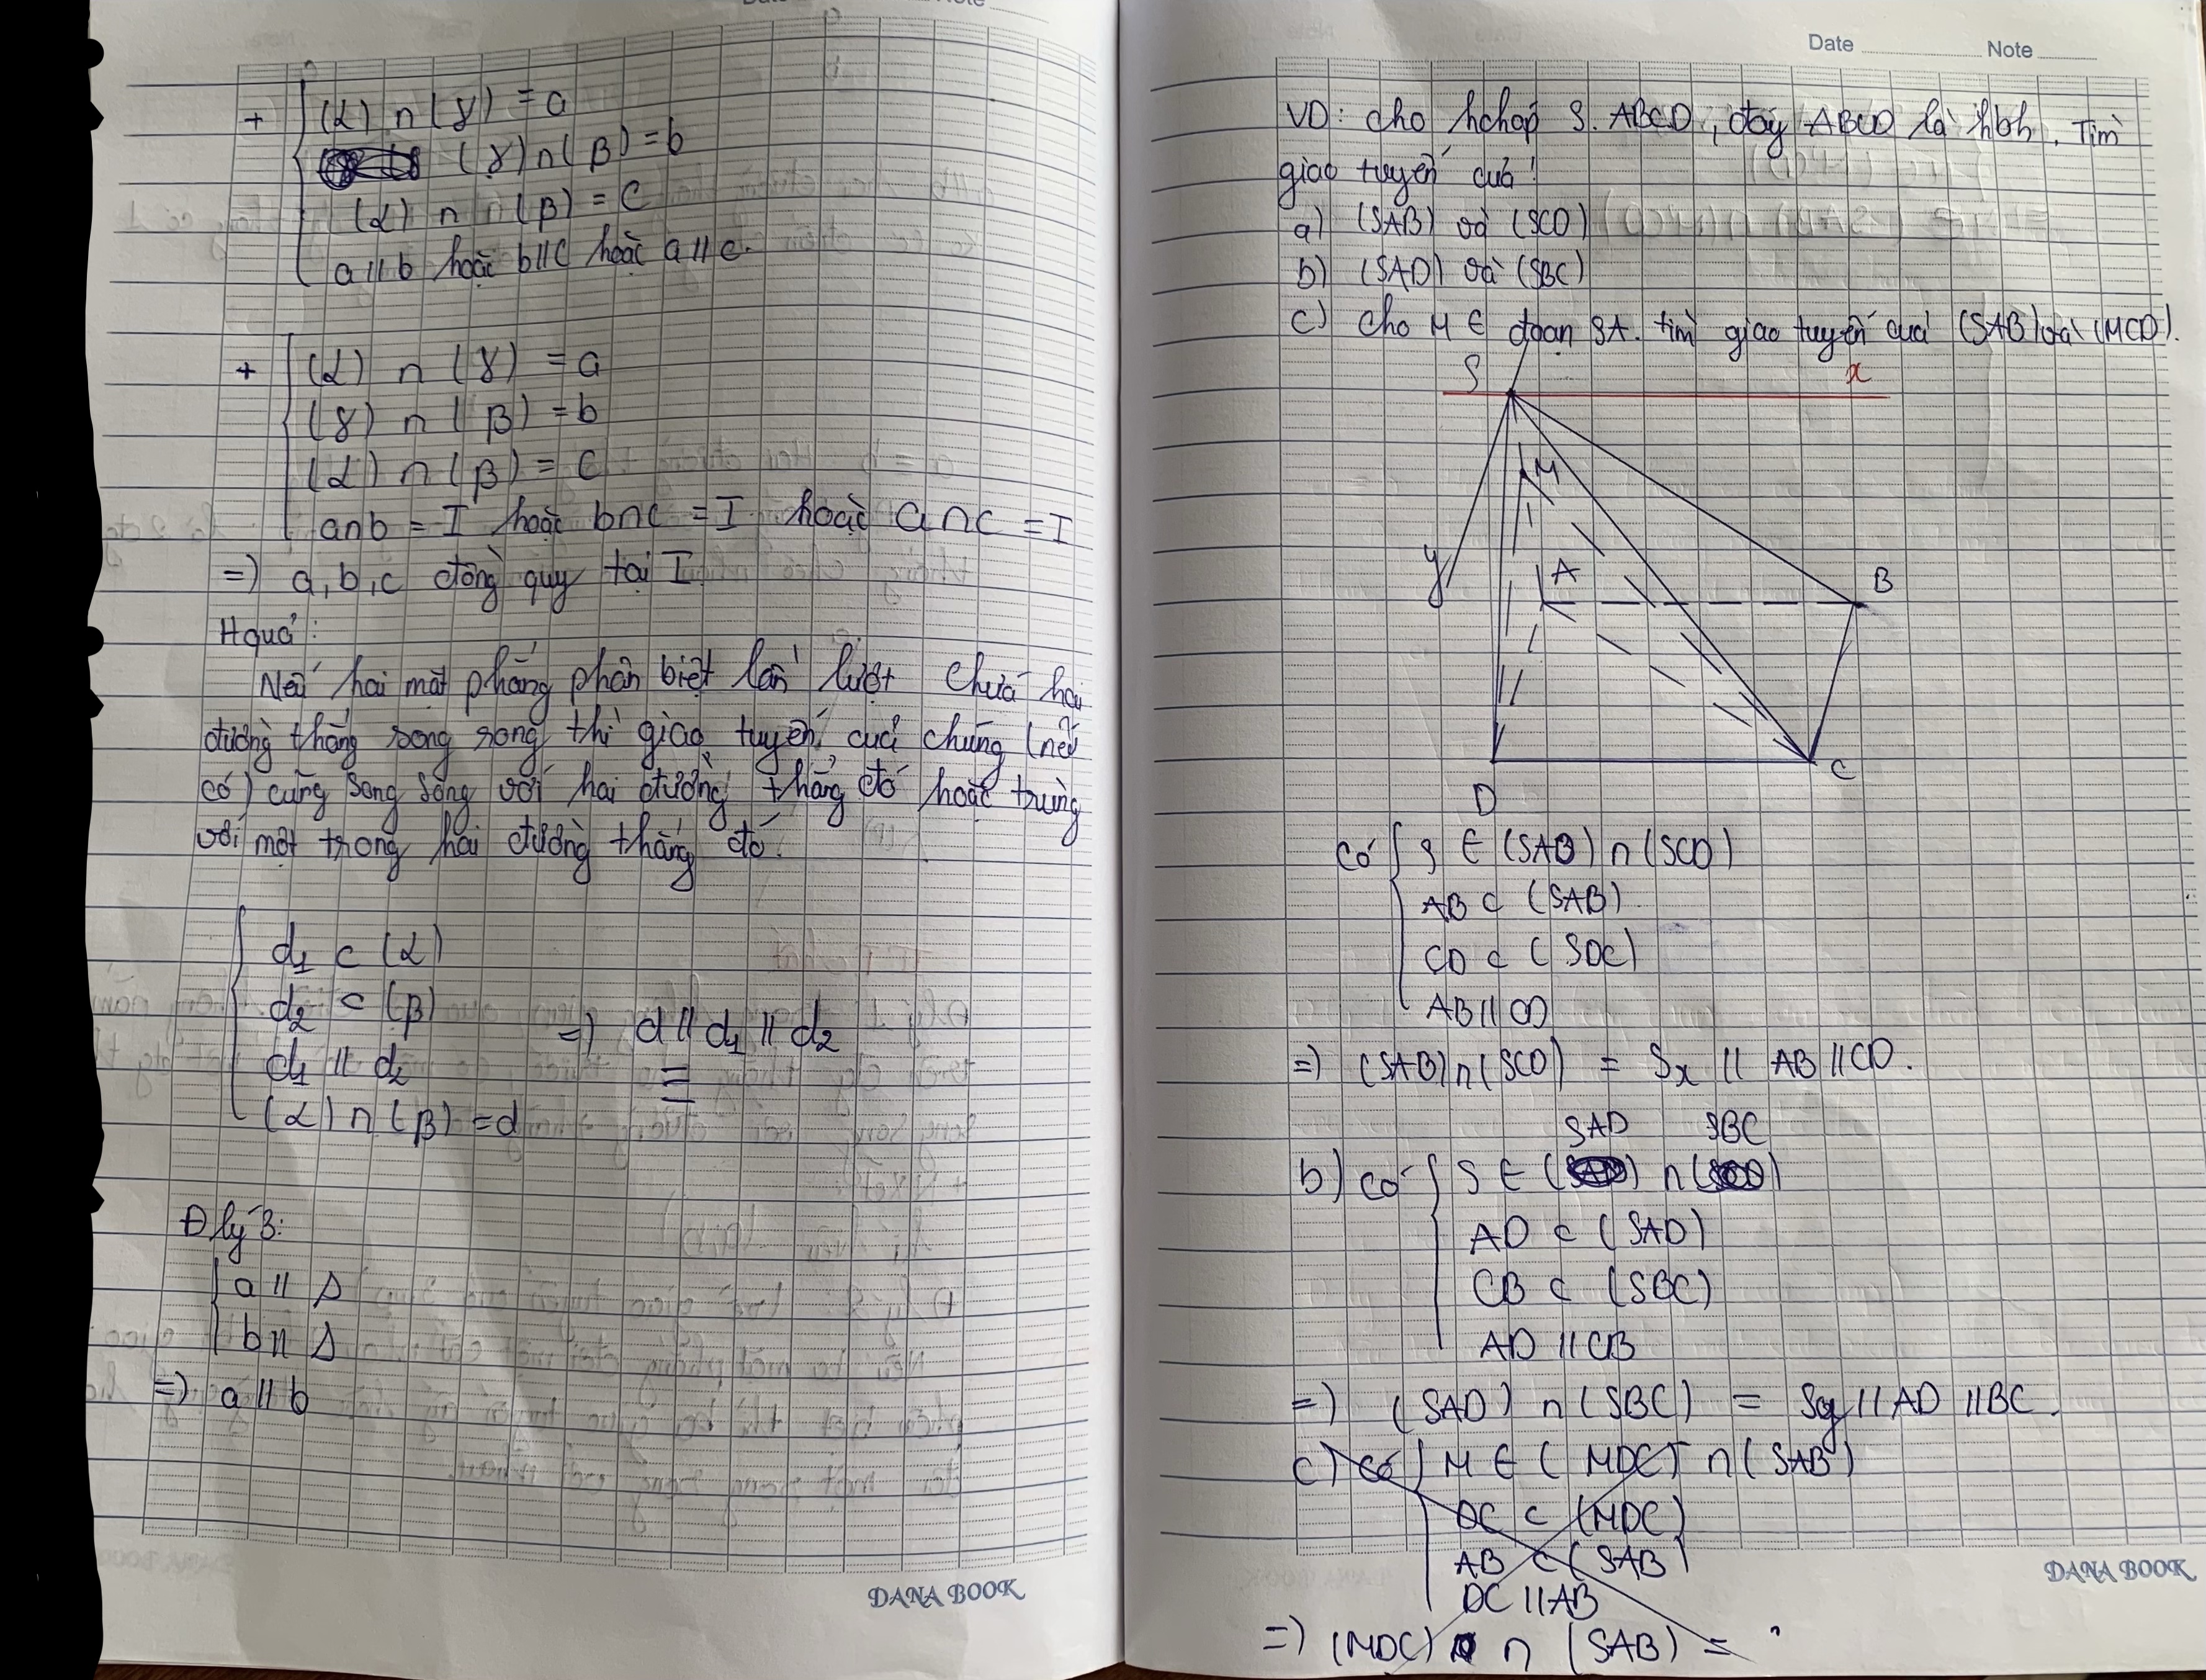 + (α) ∩ (γ) = a
(γ) ∩ (β) = b
(α) ∩ (β) = c
a // b hoặc b // c hoặc a // c.
+ (α) ∩ (γ) = a
(γ) ∩ (β) = b
(α) ∩ (β) = c
a∩b = I hoặc b∩c = I hoặc a∩c = I
=) a, b, c đồng quy tại I
Hquả:
Nếu hai mặt phẳng phân biệt lần lượt chứa hai
đường thẳng song song thì giao tuyến của chúng (nếu
có) cũng song song với hai đường thẳng đó hoặc trùng
với một trong hai đường thẳng đó.
d1 ⊂ (α)
d2 ⊂ (β)
d1 // d2
(α) ∩ (β) = d
=) d // d1 // d2
≡
Đlý 3:
a // Δ
b // Δ
=) a // b
DANA BOOK
Date Note
VD: cho hchóp S.ABCD, đáy ABCD là hbh. Tìm
giao tuyến của:
a) (SAB) và (SCD)
b) (SAD) và (SBC)
c) cho M ∈ đoạn SA. tìm giao tuyến của (SAB) và (MCD).
S x
M
y A B
D C
Có S ∈ (SAB) ∩ (SCD)
AB ⊂ (SAB)
CD ⊂ (SDC)
AB // CD
=) (SAB) ∩ (SCD) = Sx // AB // CD.
SAD SBC
b) Có S ∈ ( ) ∩ ( )
AD ⊂ (SAD)
CB ⊂ (SBC)
AD // CB
=) (SAD) ∩ (SBC) = Sy // AD // BC.
c) Có M ∈ (MDC) ∩ (SAB)
DC ⊂ (MDC)
AB ⊂ (SAB)
DC // AB
=) (MDC) ∩ (SAB) =
DANA BOOK